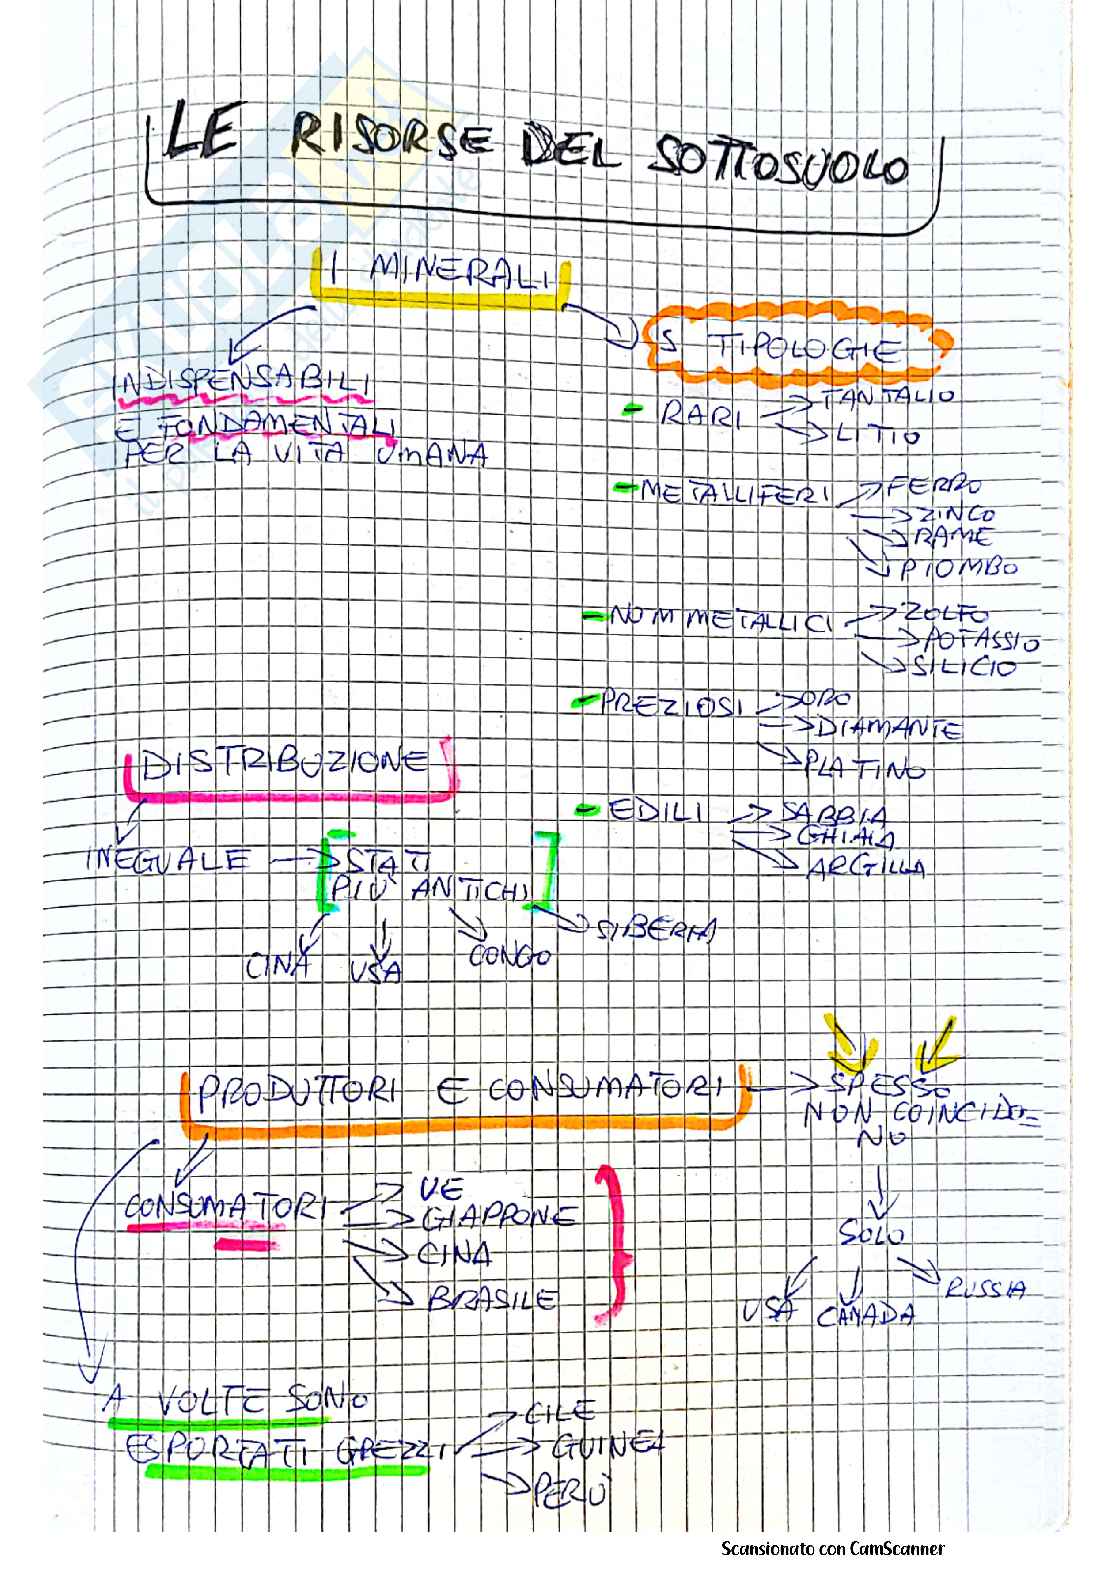 LE RISORSE DEL SOTTOSUOLO
I MINERALI
5 TIPOLOGIE
INDISPENSABILI
E FONDAMENTALI
PER LA VITA UMANA
- RARI
TANTALIO
LITIO
- METALLIFERI
FERRO
ZINCO
RAME
PIOMBO
- NON METALLICI
ZOLFO
POTASSIO
SILICIO
- PREZIOSI
ORO
DIAMANTE
PLATINO
- EDILI
SABBIA
GHIAIA
ARGILLA
DISTRIBUZIONE
INEGUALE
STATI
PIÙ ANTICHI
CINA
USA
CONGO
SIBERIA
PRODUTTORI E CONSUMATORI
SPESSO
NON COINCIDO=
NO
SOLO
USA
CANADA
RUSSIA
CONSUMATORI
UE
GIAPPONE
CINA
BRASILE
A VOLTE SONO
ESPORTATI GREZZI
CILE
GUINEA
PERÙ
Scansionato con CamScanner